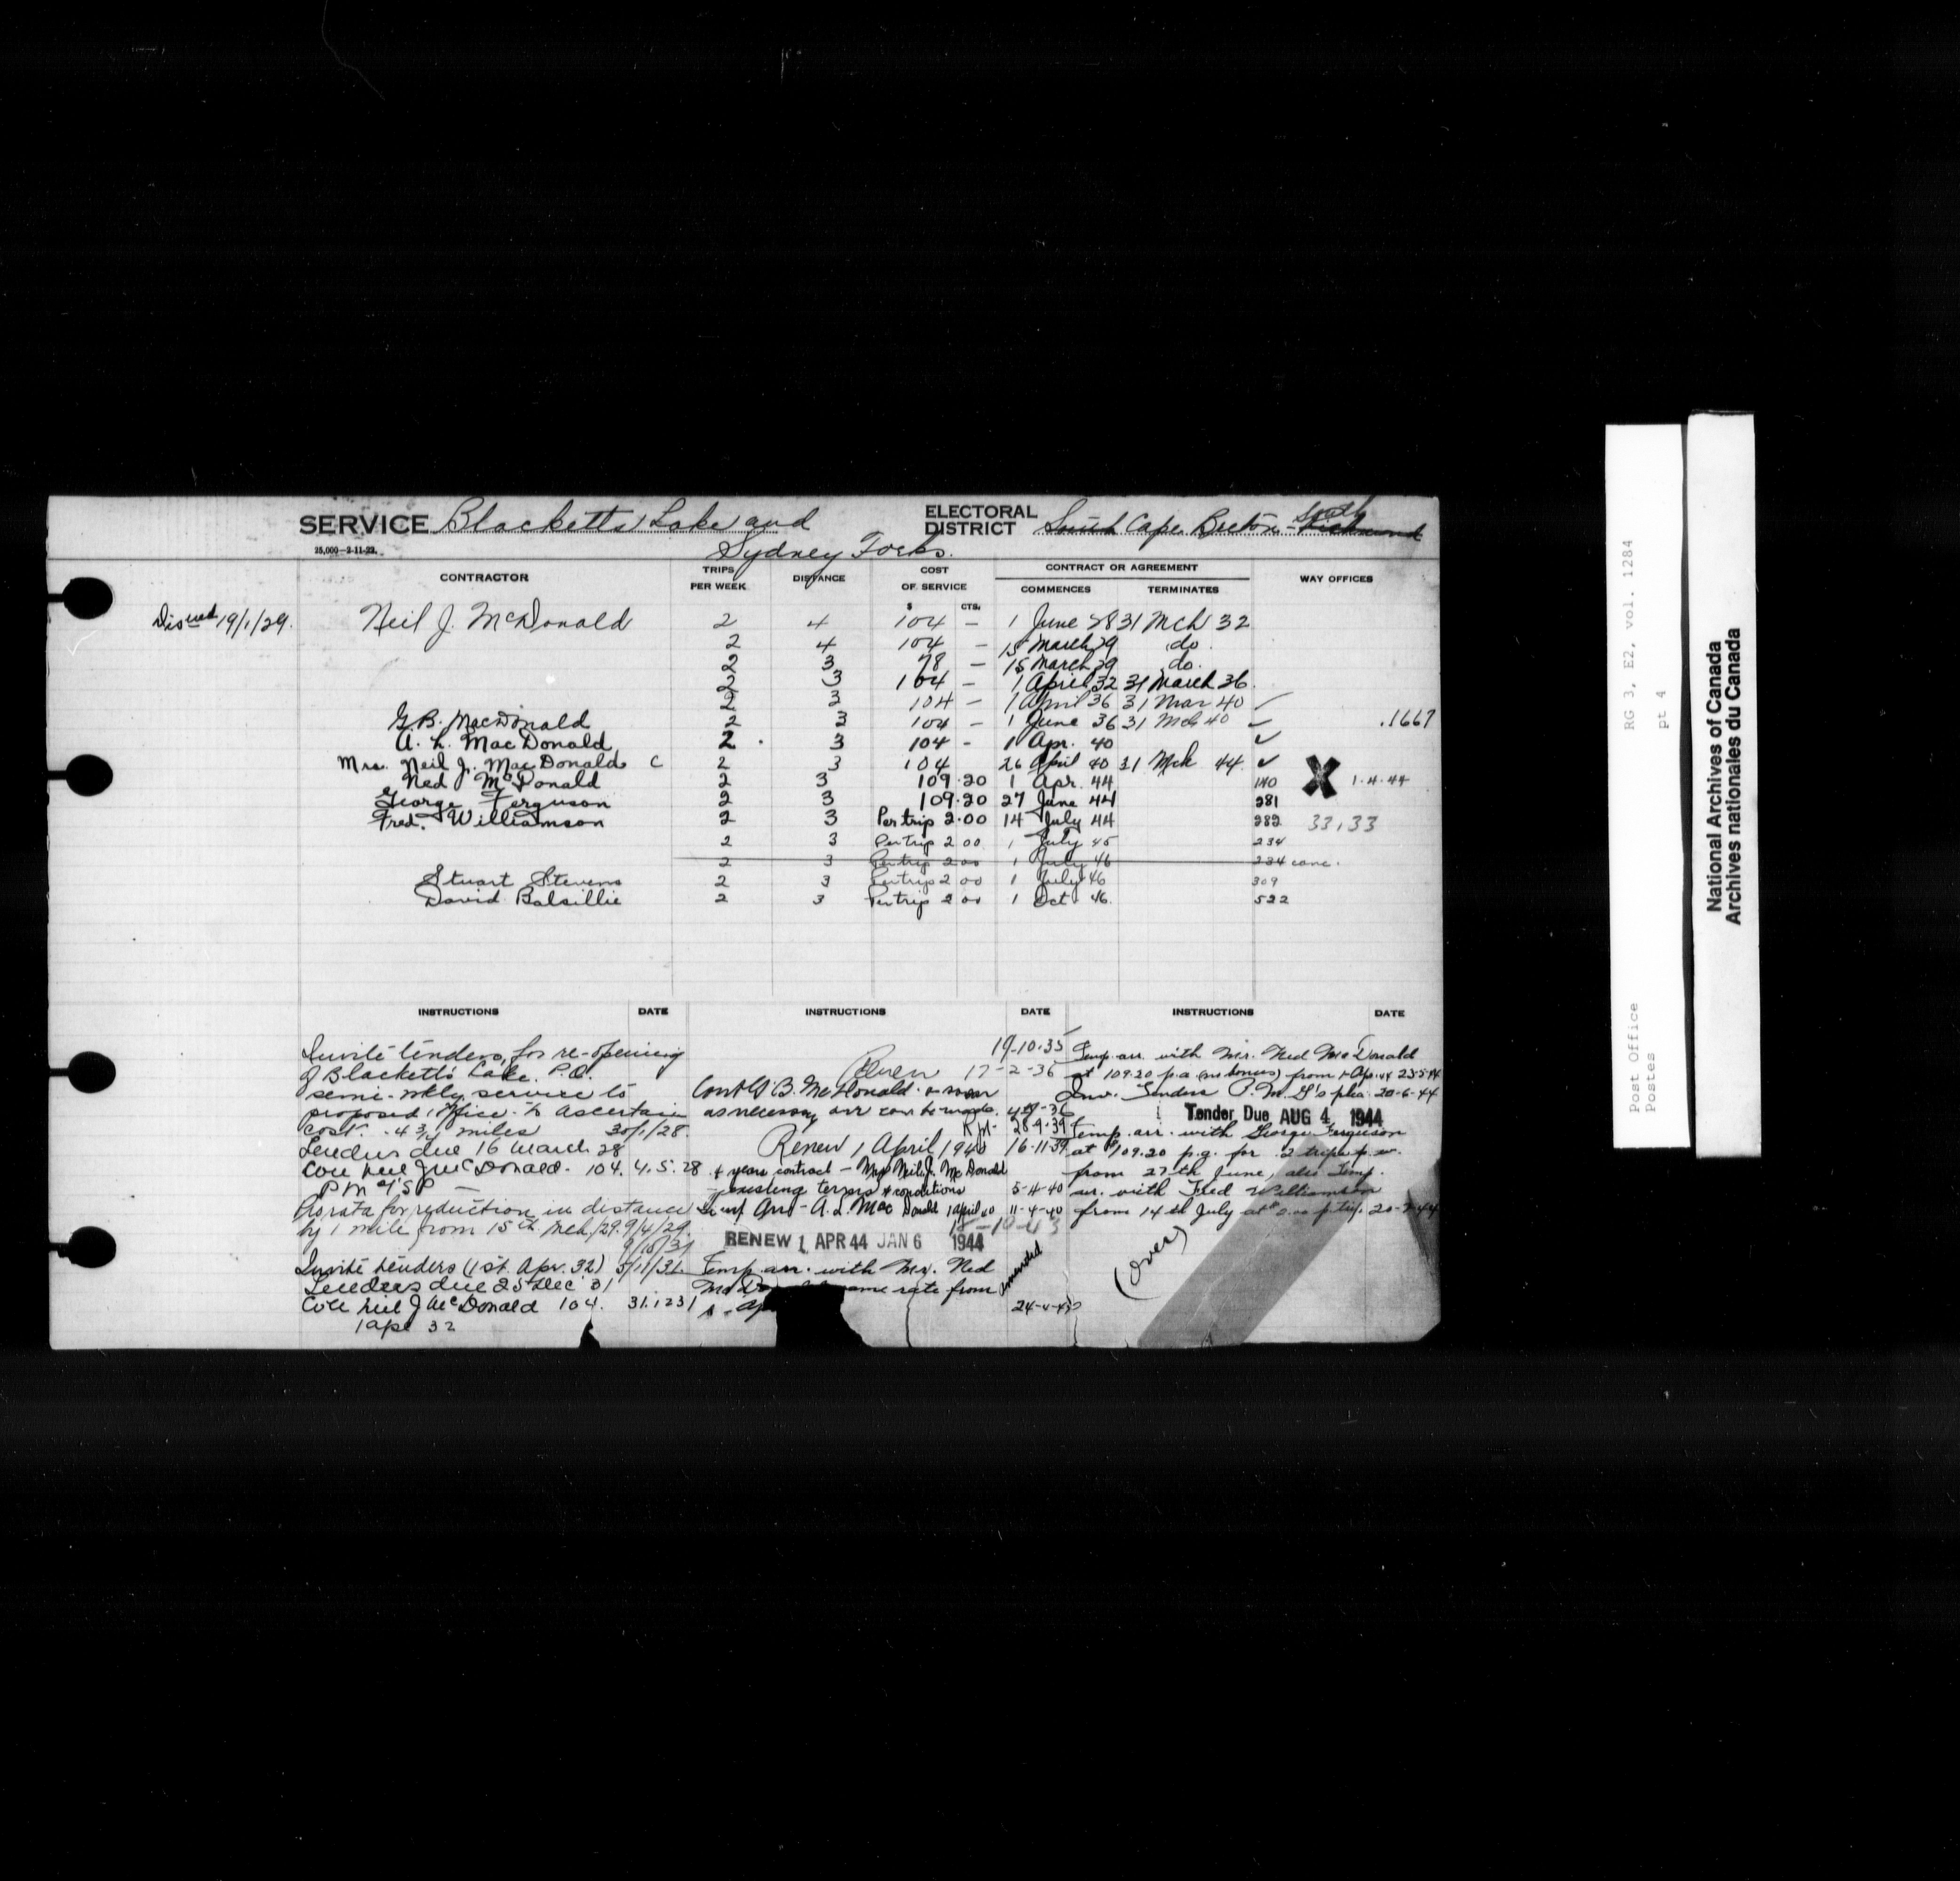 SERVICE Blacketts Lake and
Sydney Forks.
25,000-2-11-22.
ELECTORAL DISTRICT South Cape Breton - Richmond South
CONTRACTOR TRIPS PER WEEK DISTANCE COST OF SERVICE $ CTS. CONTRACT OR AGREEMENT COMMENCES TERMINATES WAY OFFICES
Disced 19/1/29. Neil J. McDonald 2 4 104 - 1 June 28 31 Mch 32
2 4 104 - 15 March 29 do.
2 3 78 - 15 March 29 do.
2 3 104 - 1 April 32 31 March 36.
2 3 104 - 1 April 36 31 Mar 40 ✓
G.B. MacDonald 2 3 104 - 1 June 36 31 Mch 40 ✓ .1667
A. L. MacDonald 2 3 104 - 1 Apr. 40 ✓
Mrs. Neil J. MacDonald C 2 3 104 26 April 40 31 Mch 44. ✓
Ned McDonald 2 3 109.20 1 Apr. 44 140 X 1.4.44
George Ferguson 2 3 109.20 27 June 44 281
Fred. Williamson 2 3 Per trip 2.00 14 July 44 282 33,33
2 3 Per trip 2 00 1 July 45 234
2 3 Per trip 2 00 1 July 46 234 canc.
Stuart Stevens 2 3 Per trip 2 00 1 July 46 309
David Balsillie 2 3 Per trip 2 00 1 Oct 46. 522
INSTRUCTIONS DATE
Invite tenders, for re-opening
of Blacketts Lake P.O.
semi-wkly service to
proposed office - to ascertain
cost. - 4 3/4 miles 30/1/28.
Tenders due 16 March 28
Con Neil J McDonald - 104. 4.5.28
P M G'S P
Prorata for reduction in distance
by 1 mile from 15th Mch/29. 9/4/29.
9/10/31
Invite tenders (1st. Apr. 32) 5/11/31.
Tenders due 25 Dec 31
Con Neil J McDonald 104. 31.12 31
1 Apl 32
INSTRUCTIONS DATE
19-10-35
Renew 17-2-36
Cont G B. McDonald
as necessary arr can be made.
28-9-39
Renew 1 April 1940 16-11-39
4 years contract - Mrs Neil J. McDonald
existing terms & conditions 5-4-40
Arr - A. L. MacDonald 1 April 40 11-4-40
18-10-43
RENEW 1 APR 44 JAN 6 1944
Temp. arr. with Mr. Ned
same rate from
amended
INSTRUCTIONS DATE
Temp. arr. with Mr. Ned McDonald
at 109.20 p.a. (no bonus) from 1 Apr. 44 23-5-44
Inv. Tenders P.M.G's plea 20-6-44
Tender Due AUG 4 1944
Temp. arr. with George Ferguson
at $109.20 p.a. for 2 trips p.w.
from 27th June, also Temp.
arr. with Fred Williamson
from 14th July at $2.00 p. trip.
(over)
RG 3, E2, vol. 1284
pt 4
Post Office
Postes
National Archives of Canada
Archives nationales du Canada